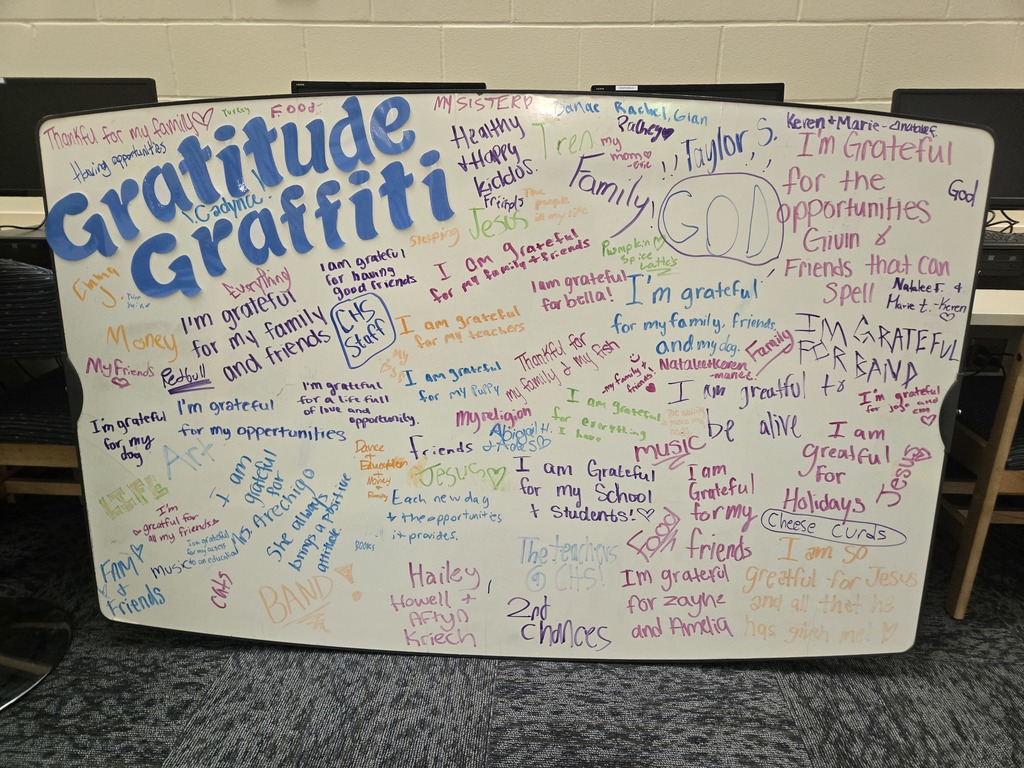 Gratitude
Graffiti
Thankful for my family♡
Turkey
Food
Having opportunities
Cadynce!
MY SISTERD
Healthy
+ Happy
Kiddos.
Friends
Tren
Danae Rachel, Gian
my
mom♡
Family!
!! Taylor S. !!
Keren + Marie -
I'm Grateful
for the
opportunities
Givin &
Friends that can
Spell
God
GOD
Jesus
The
people
in my life
Sleeping
Pumpkin♡
Spice
Lattes
Natalee F. &
Marie t. -Keren
♡
Everything!
I'm grateful
for my family
and friends
I am grateful
for having
good friends
I am grateful
for my family + friends
I am grateful
for bella!
I'm grateful
for my family, friends,
and my dog.
CHS
Staff
I am grateful
for my teachers
Money
My Friends
♡
Redbull
I am grateful
for my Puppy
Thankful for
my family & my fish
-my family &
friends
Natalee + Keren
-marie
Family
IM GRATEFUL
FOR BAND
I'm grateful
for my
dog
I'm grateful
for my oppertunities
I'm grateful
for a life full
of love and
opportunity.
my religion
I am grateful
for everything
I have
I am greatful to
be alive
I'm grateful
for jojo and
♡
Art
Friends
Abigail H.
Jesus♡
music
I am
greatful
for
Holidays
Jesus♡
LIFE
I'm
greatful for
all my friends
I am
grateful
for
Mrs Arechigo
She always
brings a positive
attitude
Dance
+
Education
+
Money
+
Family
Each new day
+ the opportunities
it provides.
I am Grateful
for my School
+ Students! ♡
I am
Grateful
for my
friends
Food
Cheese Curds
FAM♡
+
Friends
music
I am grateful
for my access
to an education
CHS
BOOKS
BAND!
The teachers
@ CHS!
Hailey
Howell +
Aftyn
Kriech
2nd
chances
I'm grateful
for zayne
and Amelia
I am so
greatful for Jesus
and all that he
has givin me! ♡